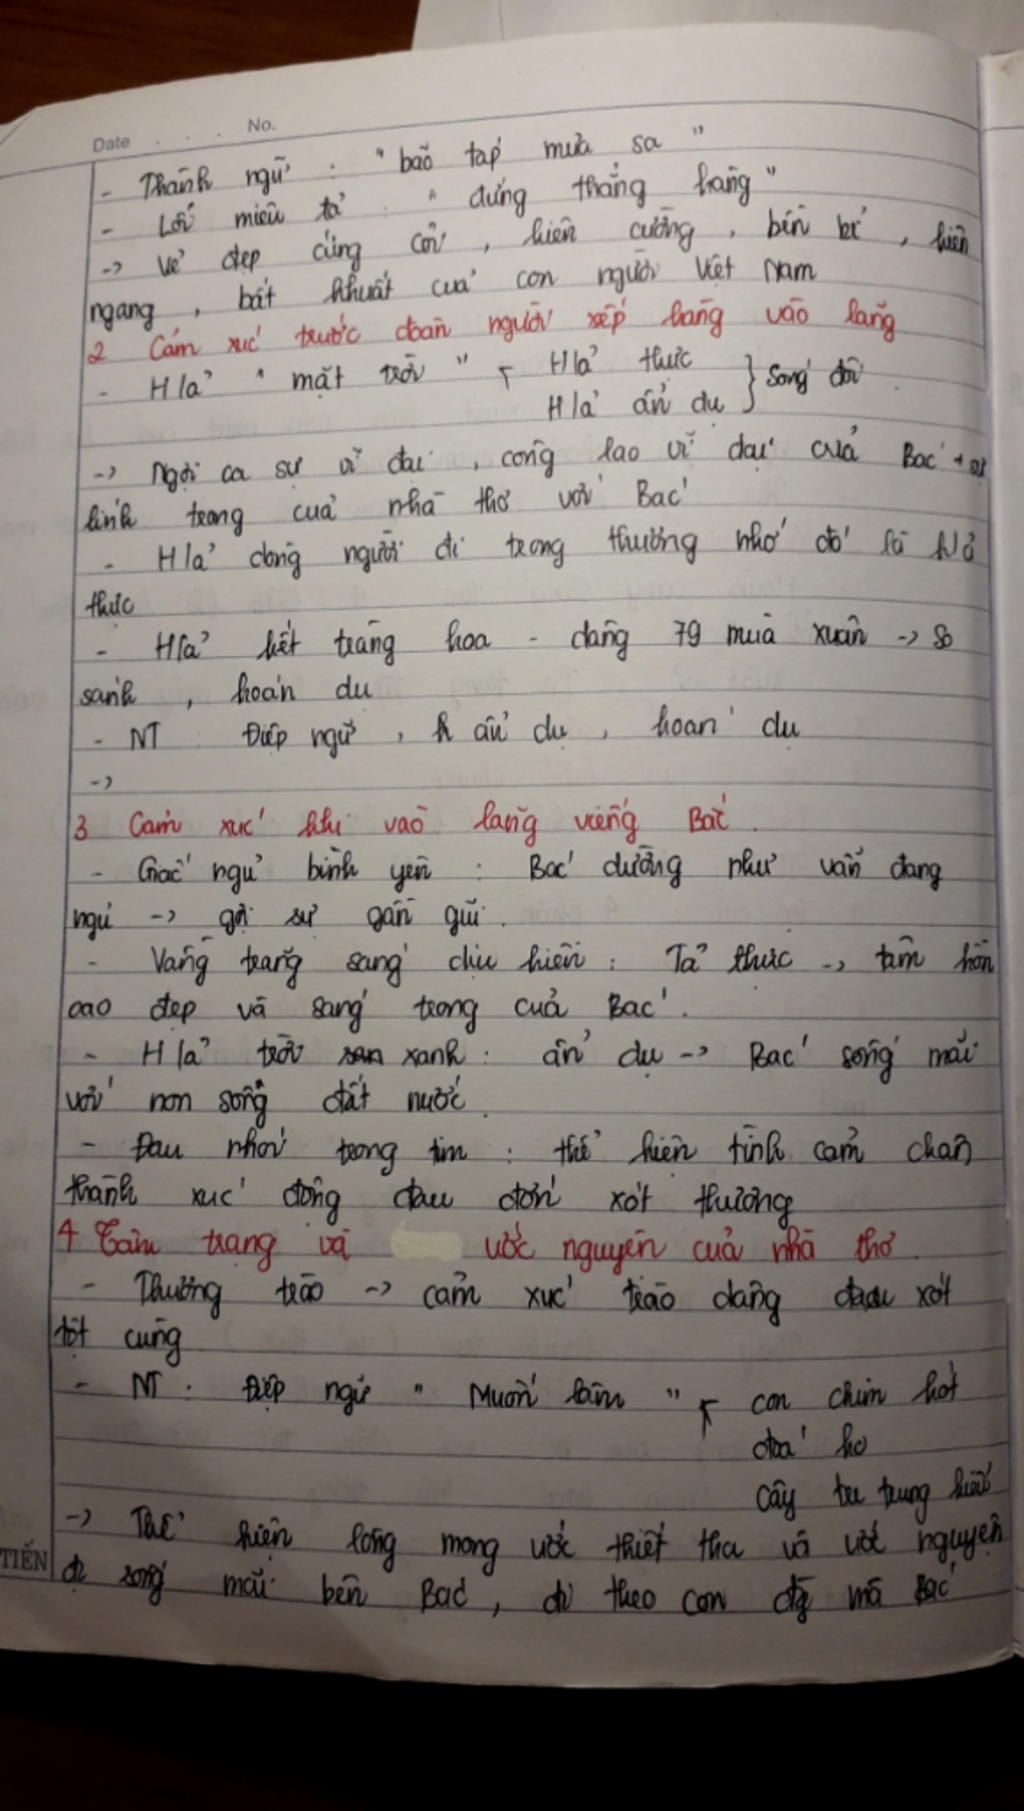 Date . . . No.
- Thành ngữ : "bão táp mưa sa"
- Lối miêu tả : "đứng thẳng hàng"
-> Vẻ đẹp cứng cỏi, kiên cường, bền bỉ, hiên
ngang, bất khuất của con người Việt Nam
2 Cảm xúc trước đoàn người xếp hàng vào lăng
- H/ả "mặt trời" H/ả thực
H/ả ẩn dụ } Sóng đôi
-> Ngợi ca sự vĩ đại, công lao vĩ đại của Bác + sự
kính trọng của nhà thơ với Bác
- H/ả dòng người đi trong thương nhớ đó là h/ả
thực
- H/ả kết tràng hoa - dâng 79 mùa xuân -> So
sánh, hoán dụ
- NT : Điệp ngữ, ẩn dụ, hoán dụ
->
3 Cảm xúc khi vào lăng viếng Bác.
- Giấc ngủ bình yên : Bác dường như vẫn đang
ngủ -> gợi sự gần gũi.
- Vầng trăng sáng dịu hiền : Tả thực -> tâm hồn
cao đẹp và sáng trong của Bác.
- H/ả trời xanh : ẩn dụ -> Bác sống mãi
với non sông đất nước.
- Đau nhói trong tim : thể hiện tình cảm chân
thành xúc động đau đớn xót thương
4 Tâm trạng và ước nguyện của nhà thơ.
- Thương trào -> cảm xúc trào dâng đau xót
tột cùng
- NT : Điệp ngữ "Muốn làm" con chim hót
đoá hoa
Cây tre trung hiếu
-> Thể hiện lòng mong ước thiết tha và ước nguyện
đc sống mãi bên Bác, đi theo con đg mà Bác
TIẾN